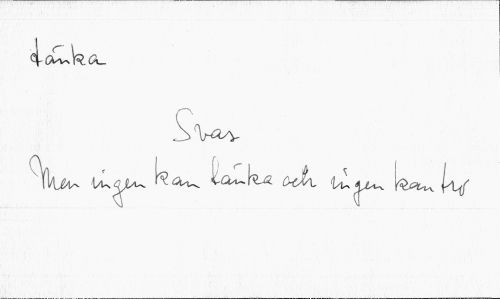 tänka
Svar
Men ingen kan tänka och ingen kan tro